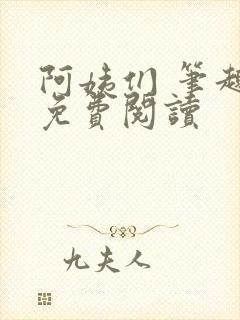 阿姨们 筆趣
免費閱讀
九夫人